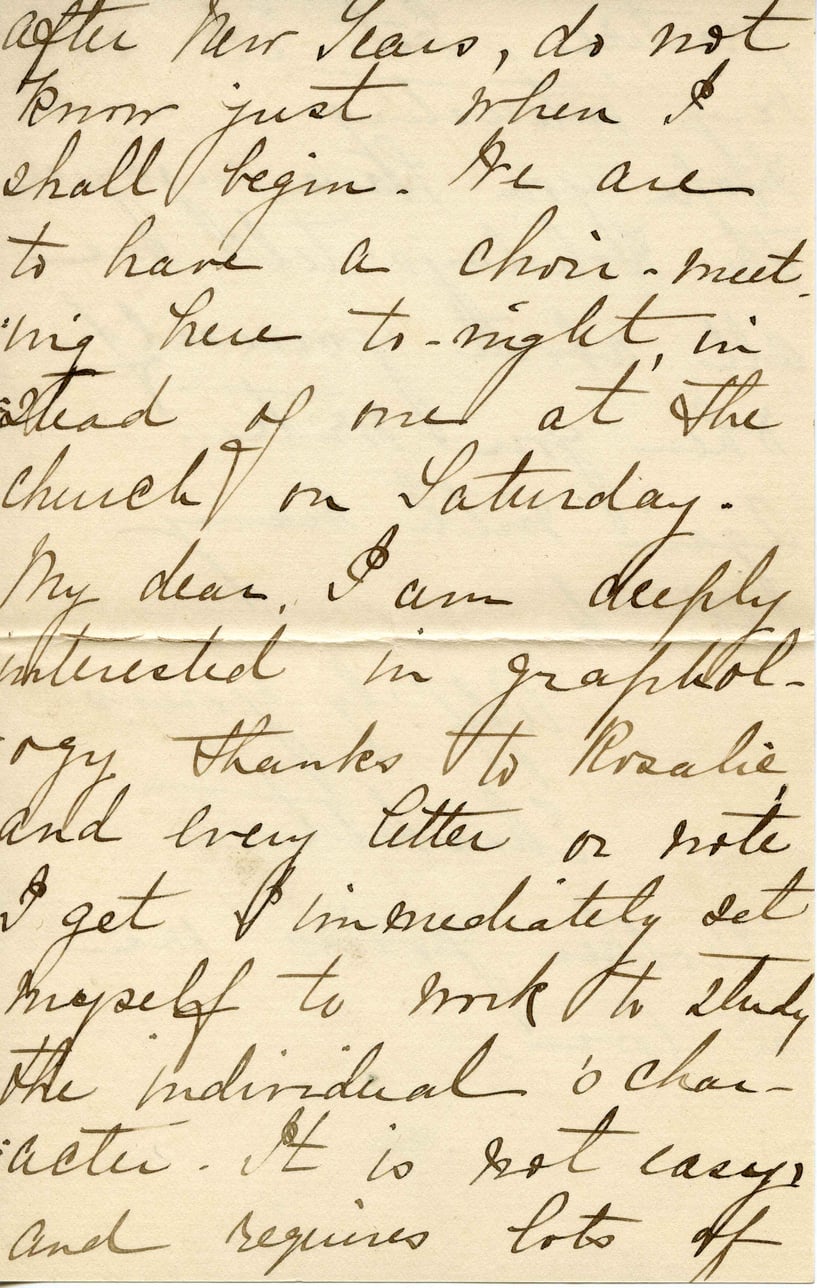 after New Years, do not
know just when I
shall begin. We are
to have a choir-meet-
ing here to-night, in
stead of one at the
church on Saturday.
My dear, I am deeply
interested in graphol-
ogy thanks to Rosalie,
and every letter or note
I get I immediately set
myself to work to study
the individual's char-
acter. It is not easy,
and requires lots of